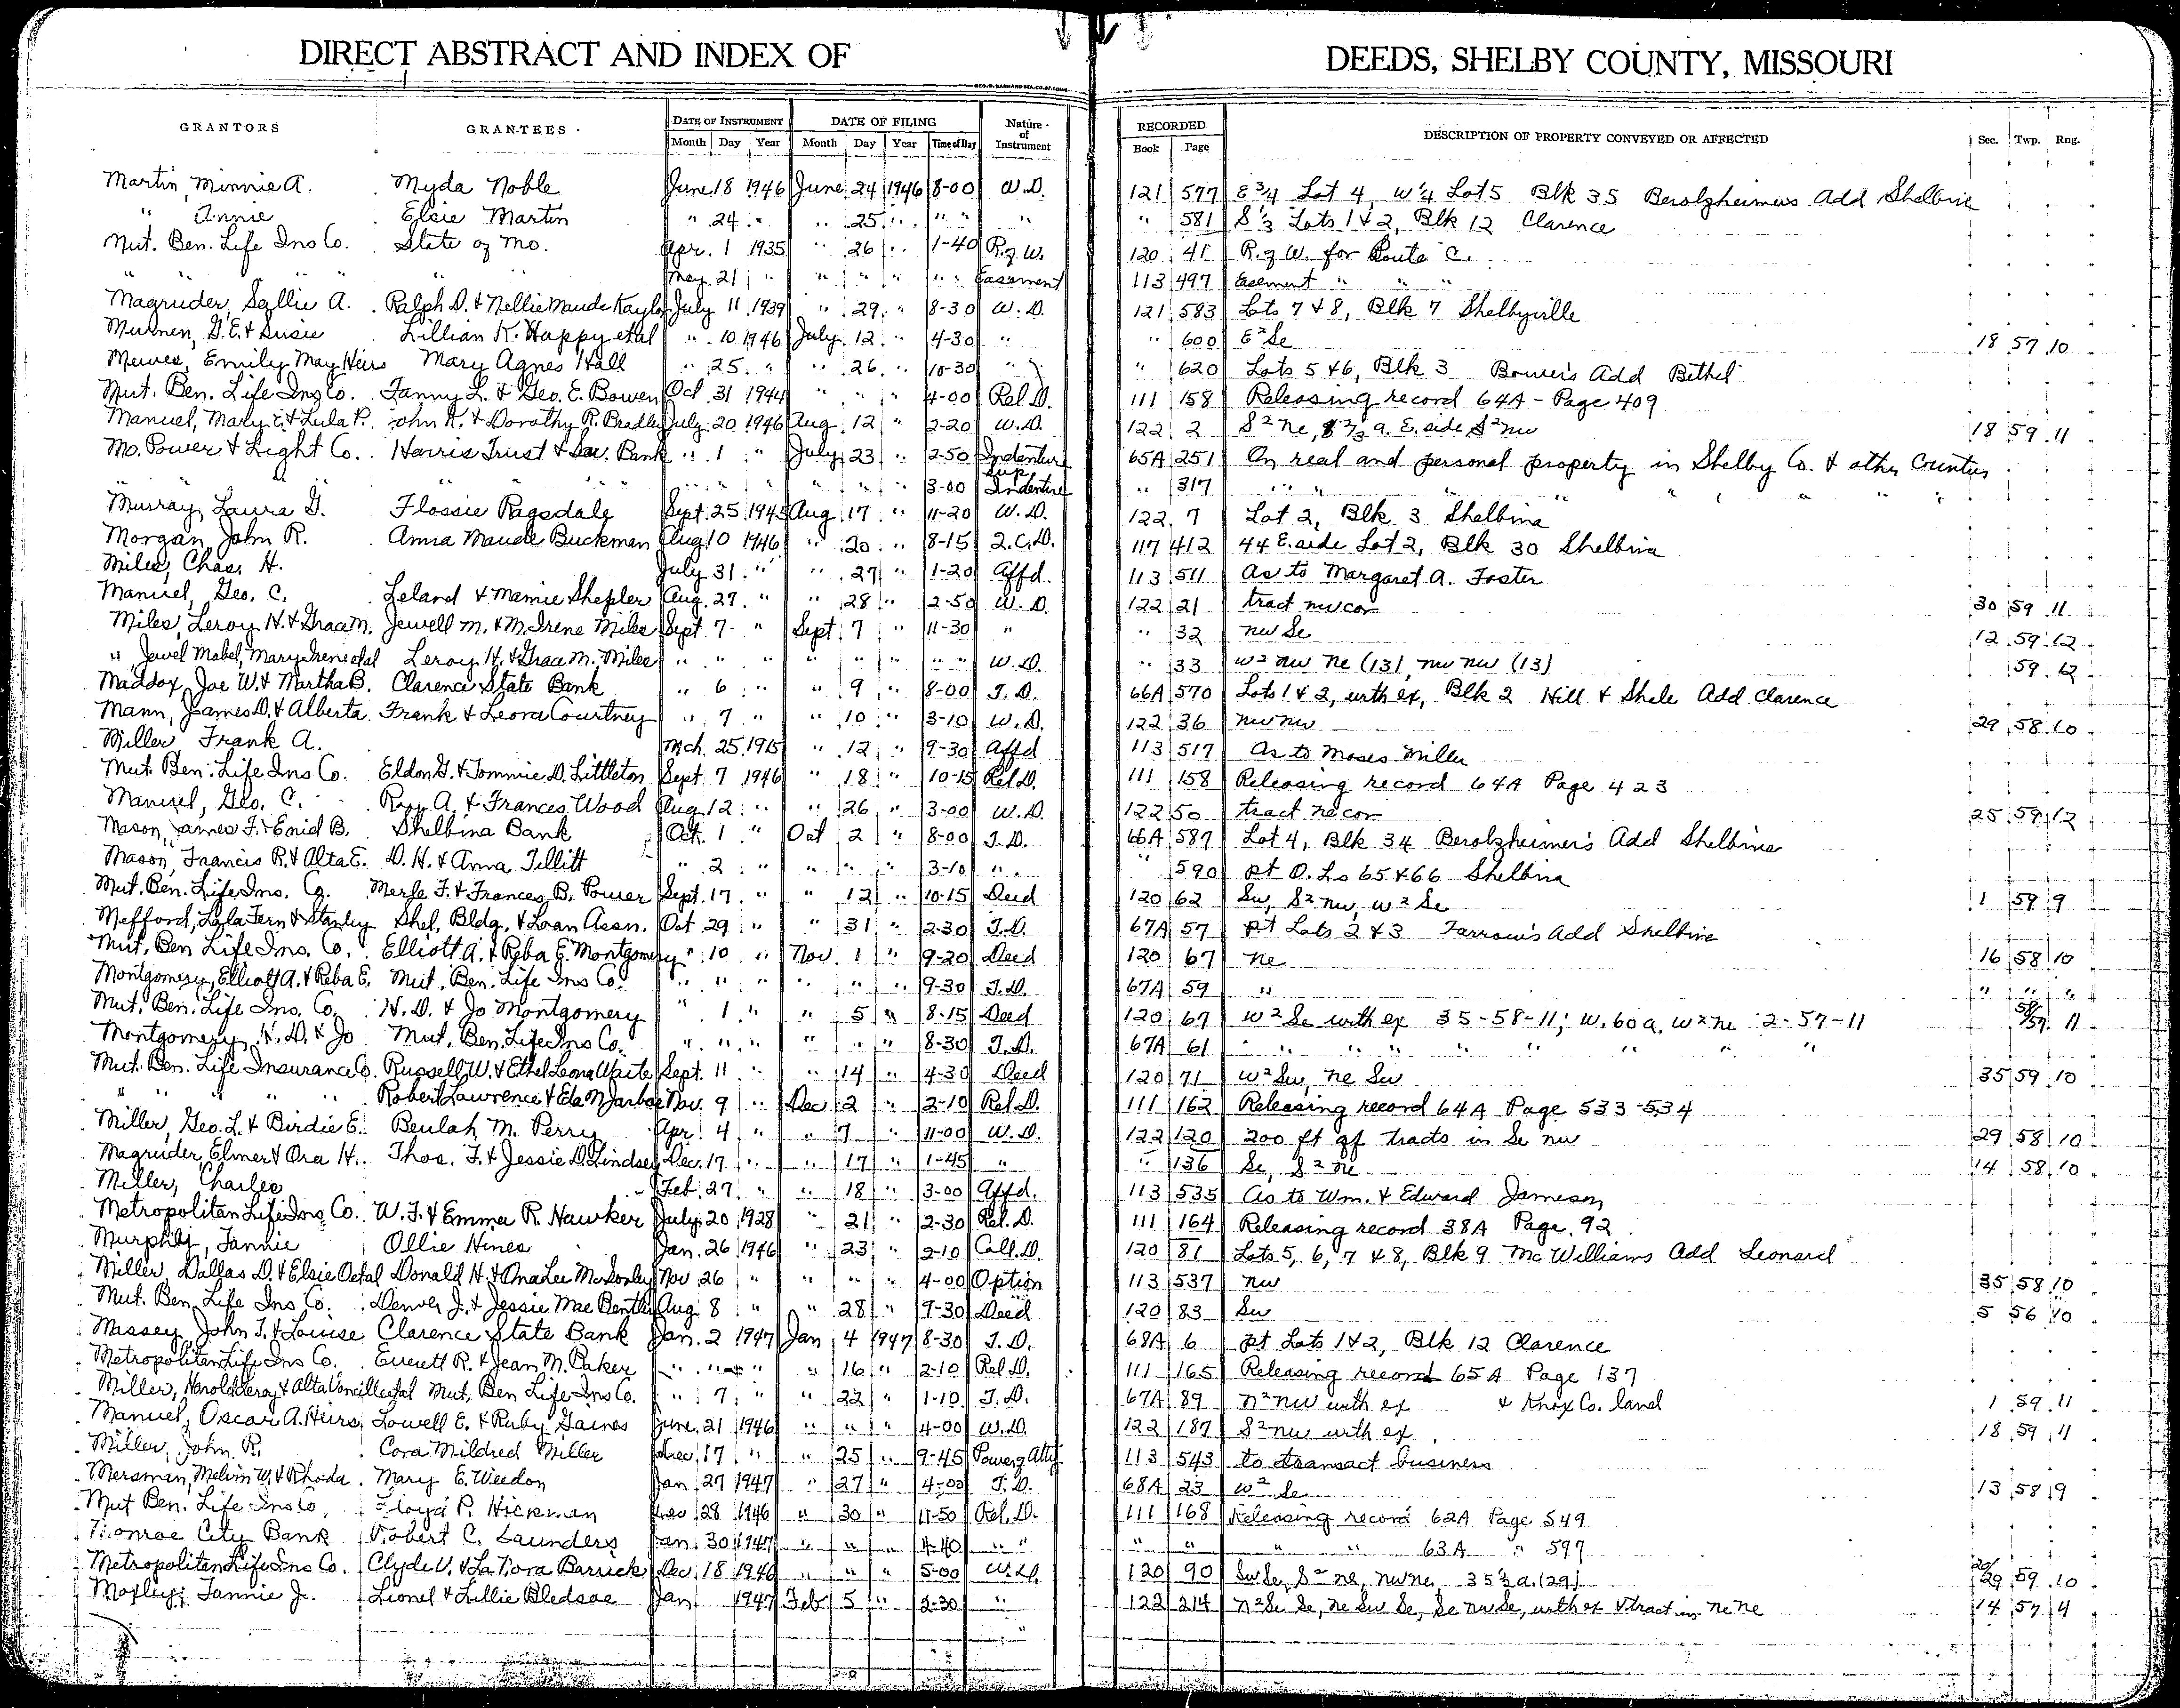 DIRECT ABSTRACT AND INDEX OF DEEDS, SHELBY COUNTY, MISSOURI
GRANTORS GRANTEES DATE OF INSTRUMENT DATE OF FILING Nature of Instrument RECORDED DESCRIPTION OF PROPERTY CONVEYED OR AFFECTED Sec. Twp. Rng.
Month Day Year Month Day Year Time of Day Book Page
Martin, Minnie A. Myda Noble June 18 1946 June 24 1946 8-00 W.D. 121 577 E 3/4 Lot 4, W 1/4 Lot 5 Blk 35 Berolzheimers Add Shelbina
" Annie Elsie Martin " 24 " " 25 " " " " " 581 S 1/3 Lots 1 & 2, Blk 12 Clarence
Mut. Ben. Life Ins Co. State of Mo. Apr. 1 1935 " 26 " 1-40 R. of W. 120 41 R. of W. for Route C.
" " " " May 21 " " " " " " Easement 113 497 Easement " " "
Magruder, Sallie A. Ralph D. & Nellie Maude Kaylor July 11 1939 " 29 " 8-30 W.D. 121 583 Lots 7 & 8, Blk 7 Shelbyville
G.E. & Susie Lillian K. Happy etal " 10 1946 July 12 " 4-30 " " 600 E² Se 18 57 10
Mewes, Emily May Heirs Mary Agnes Hall " 25 " " 26 " 10-30 " " 620 Lots 5 & 6, Blk 3 Bower's Add Bethel
Mut. Ben. Life Ins Co. Fanny L. & Geo. E. Bowen Oct 31 1944 " " " 4-00 Rel D. 111 158 Releasing record 64A - Page 409
Manuel, Mary E. & Lula P. John K. & Dorothy R. Bradley July 20 1946 Aug 12 " 2-20 W.D. 122 2 S² Ne, a. E. side S² nw 18 59 11
Mo. Power & Light Co. Harris Trust & Sav. Bank " 1 " July 23 " 2-50 Indenture 65A 251 On real and personal property in Shelby Co. & other Counties
" " " " " " " " " " " 3-00 Sup. Indenture " 317 " " " " " " " " "
Murray, Laura G. Flossie Ragsdale Sept. 25 1945 Aug 17 " 11-20 W.D. 122 7 Lot 2, Blk 3 Shelbina
Morgan, John R. Anna Maude Buckman Aug 10 1946 " 20 " 8-15 Q.C.D. 117 412 44 E. side Lot 2, Blk 30 Shelbina
Miles, Chas. H. July 31 " " 27 " 1-20 Affd. 113 511 As to Margaret A. Foster
Manuel, Geo. C. Leland & Mamie Shepler Aug. 27 " " 28 " 2-50 W.D. 122 21 tract nw cor 30 59 11
Miles, Leroy H. & Grace M. Jewell M. & M. Irene Miles Sept. 7 " Sept. 7 " 11-30 " " 32 nw Se 12 59 12
" Jewel Mabel, Mary Irene etal Leroy H. & Grace M. Miles " " " " " " " " W.D. " 33 W² nw ne (13), nw nw (13) 59 12
Maddox, Joe W. & Martha B. Clarence State Bank " 6 " " 9 " 8-00 T.D. 66A 570 Lots 1 & 2, with ex, Blk 2 Hill & Shele Add Clarence
Mann, James D. & Alberta Frank & Leora Courtney " 7 " " 10 " 3-10 W.D. 122 36 nw nw 29 58 10
Miller Frank A. Mch. 25 1915 " 12 " 9-30 Affd 113 517 As to Moses Miller
Mut. Ben. Life Ins Co. Eldon G. & Tommie D. Littleton Sept. 7 1946 " 18 " 10-15 Rel D. 111 158 Releasing record 64A Page 423
Manuel, Geo. C. Roy A. & Frances Wood Aug 12 " " 26 " 3-00 W.D. 122 50 tract ne cor 25 59 12
Mason, James F. & Enid B. Shelbina Bank Oct. 1 " Oct 2 " 8-00 T.D. 66A 587 Lot 4, Blk 34 Berolzheimer's Add Shelbina
Mason, Francis R. & Alta E. D. H. & Anna Tillitt " 2 " " " " 3-10 " " 590 pt O. Ls 65 & 66 Shelbina
Mut. Ben. Life Ins. Co. Merle F. & Frances B. Power Sept. 17 " " 12 " 10-15 Deed 120 62 Sw, S² nw, W² Se 1 59 9
Mefford, Lyla Fern & Stanley Shel. Bldg. & Loan Assn. Oct 29 " " 31 " 2-30 T.D. 67A 57 pt Lots 2 & 3 Tarrow's Add Shelbina
Mut. Ben Life Ins. Co. Elliott A. & Reba E. Montgomery " 10 " Nov. 1 " 9-20 Deed 120 67 ne 16 58 10
Montgomery, Elliott A. & Reba E. Mut. Ben. Life Ins Co. " " " " " " 9-30 T.D. 67A 59 " " " "
Mut. Ben. Life Ins. Co. H. D. & Jo Montgomery " 1 " " 5 " 8-15 Deed 120 67 W² Se with ex 35-58-11; W. 60 a. W² ne 2-57-11 58/57 11
Montgomery, H. D. & Jo Mut. Ben. Life Ins Co. " " " " " " 8-30 T.D. 67A 61 " " " " " " " "
Mut. Ben. Life Insurance Co. Russell W. & Ethel Leona Waite Sept. 11 " " 14 " 4-30 Deed 120 71 W² Sw, ne Sw 35 59 10
" " " " " Robert Lawrence & Eda M. Jarboe Nov. 9 " Dec 2 " 2-10 Rel D. 111 162 Releasing record 64A Page 533-534
Miller, Geo. L. & Birdie E. Beulah M. Perry Apr. 4 " " 7 " 11-00 W.D. 122 120 200 ft of tracts in Se nw 29 58 10
Magruder, Elmer & Ora H. Thos. F. & Jessie D. Lindsey Dec. 17 " " 17 " 1-45 " " 136 Se, S² ne 14 58 10
Miller, Charles Feb. 27 " " 18 " 3-00 Affd. 113 535 As to Wm. & Edward Jameson
Metropolitan Life Ins Co. W. F. & Emma R. Hawker July 20 1928 " 21 " 2-30 Rel. D. 111 164 Releasing record 38A Page 92
Murphy, Fannie Ollie Hines Jan. 26 1946 " 23 " 2-10 Coll. D. 120 81 Lots 5, 6, 7 & 8, Blk 9 McWilliams Add Leonard
Miller, Dallas D. & Elsie O etal Donald H. & Ona Lee McSorley Nov 26 " " " " 4-00 Option 113 537 nw 35 58 10
Mut. Ben Life Ins Co. Denver J. & Jessie Mae Bentley Aug 8 " " 28 " 9-30 Deed 120 83 Sw 5 56 10
Massey, John T. & Louise Clarence State Bank Jan. 2 1947 Jan 4 1947 8-30 T.D. 68A 6 pt Lots 1 & 2, Blk 12 Clarence
Metropolitan Life Ins Co. Everett R. & Jean M. Baker " " " " 16 " 2-10 Rel D. 111 165 Releasing record 65A Page 137
Miller, Harold Leroy & Alta etal Mut. Ben Life Ins Co. " 7 " " 22 " 1-10 T.D. 67A 89 n² nw with ex & Knox Co. land 1 59 11
Manuel, Oscar A. Heirs Lowell E. & Ruby Gaines June 21 1946 " " " 4-00 W.D. 122 187 S² nw with ex 18 59 11
Miller, John R. Cora Mildred Miller Dec. 17 " " 25 " 9-45 Power of Atty 113 543 to transact business
Mersman, Melvin W. & Rhoda Mary E. Weedon Jan 27 1947 " 27 " 4-00 T.D. 68A 23 W² Se 13 58 9
Mut Ben. Life Ins Co. Floyd P. Hickman Dec 28 1946 " 30 " 11-50 Rel. D. 111 168 Releasing record 62A Page 549
Monroe City Bank Robert C. Saunders Jan 30 1947 " " " 4-40 " " " " " " 63A " 597
Metropolitan Life Ins Co. Clyde V. & LaNora Barrick Dec. 18 1946 " " " 5-00 W.D. 120 90 Sw Se, S² ne, nw ne, 35 1/3 a. (29) 20/29 59 10
Moxley, Fannie J. Lionel & Lillie Bledsoe Jan 1947 Feb 5 " 2-30 " 122 214 n² Se Se, ne Sw Se, Se nw Se, with ex & tract in ne ne 14 57